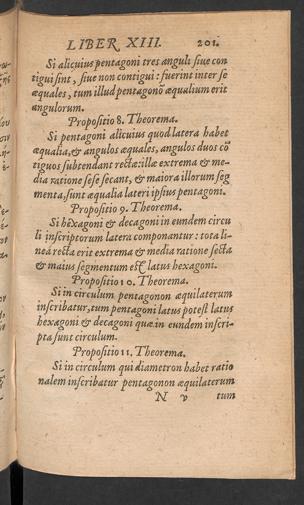 LIBER XIII. 201.
Si alicuius pentagoni tres anguli siue con
tigui sint, siue non contigui: fuerint inter se
æquales, tum illud pentagonō æqualium erit
angulorum.
Propositio 8. Theorema.
Si pentagoni alicuius quod latera habet
æqualia, & angulos æquales, angulos duos cō
tiguos subtendant rectæ: illæ extrema & me-
dia ratione sese secant, & maiora illorum seg
menta, sunt æqualia lateri ipsius pentagoni.
Propositio 9. Theorema.
Si hexagoni & decagoni in eundem circu
li inscriptorum latera componantur: tota li-
nea recta erit extrema & media ratione secta
& maius segmentum est latus hexagoni.
Propositio 10. Theorema.
Si in circulum pentagonon æquilaterum
inscribatur, tum pentagoni latus potest latus
hexagoni & decagoni quæ in eundem inscri-
pta sunt circulum.
Propositio 11. Theorema.
Si in circulum qui diametron habet ratio
nalem inscribatur pentagonon æquilaterum
N v tum